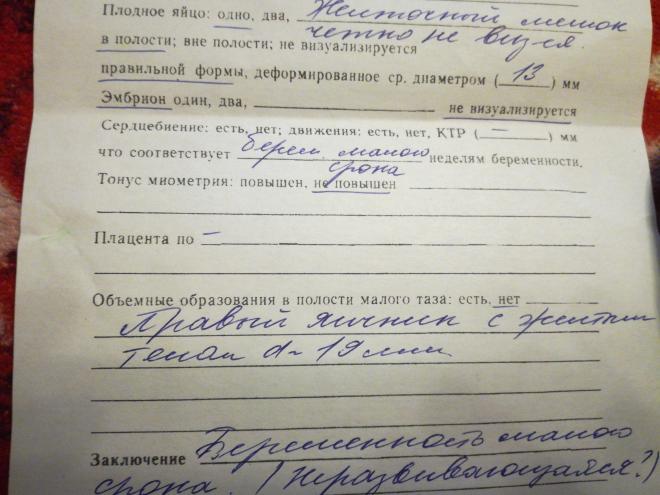 Плодное яйцо: одно, два, Желточный мешок
четко не виз-ся.
в полости; вне полости; не визуализируется
правильной формы, деформированное ср. диаметром (13) мм
Эмбрион один, два, не визуализируется
Сердцебиение: есть, нет; движения: есть, нет, КТР (—) мм
что соответствует берем. малого неделям беременности.
срока
Тонус миометрия: повышен, не повышен
Плацента по —
Объемные образования в полости малого таза: есть, нет
Правый яичник с желтым
телом d- 19 мм
Заключение Беременность малого
срока. (Неразвивающаяся?)